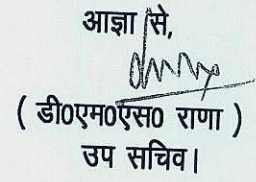 आज्ञा से,
( डी०एम०एस० राणा )
उप सचिव।